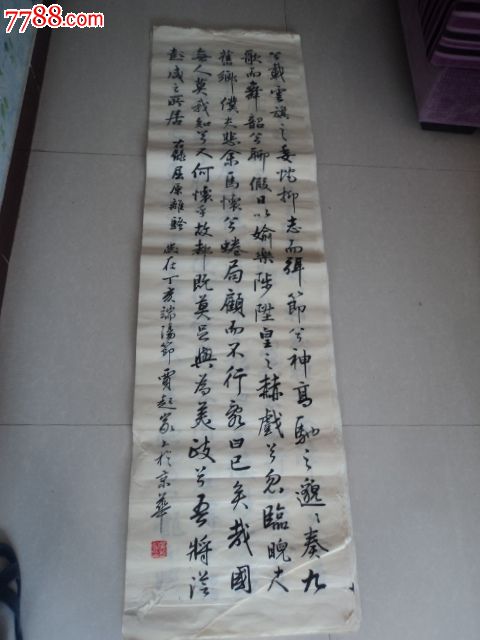 7788.com
兮載雲旗之委蛇抑志而弭節兮神高馳之邈〻奏九
歌而舞韶兮聊假日以媮樂陟陞皇之赫戲兮忽臨睨夫
舊鄉僕夫悲余馬懷兮蜷局顧而不行亂曰已矣哉國
無人莫我知兮又何懷乎故都既莫足與為美政兮吾將從
彭咸之所居 錄屈原離騷 歲在丁亥端陽節 賈起家書於京華